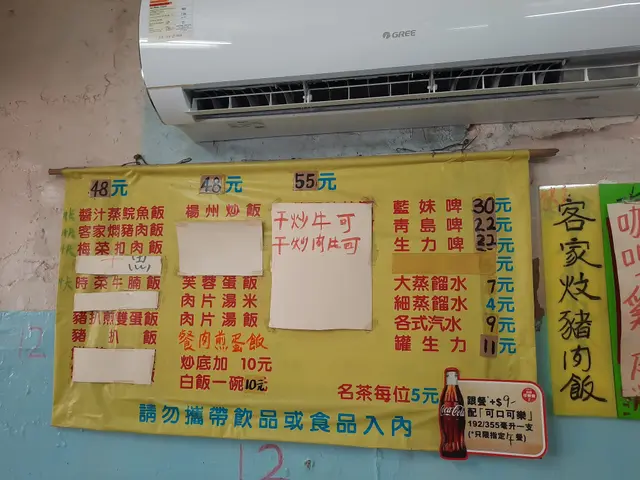 GREE
48元
醬汁蒸鯇魚飯
客家燜豬肉飯
梅菜扣肉飯
時菜牛腩飯
豬扒煎雙蛋飯
豬扒飯
48元
楊州炒飯
芙蓉蛋飯
肉片湯米
肉片湯飯
餐肉煎蛋飯
炒底加 10元
白飯一碗10元
55元
干炒牛可
干炒肉片可
藍妹啤 30元
青島啤 22元
生力啤 22元
元
大蒸餾水 7元
細蒸餾水 4元
各式汽水 9元
罐生力 11元
名茶每位5元
請勿攜帶飲品或食品入內
Coca-Cola
跟餐+$9-
配「可口可樂」
192/355毫升一支
(*只限指定午餐)
客家炆豬肉飯
12
12